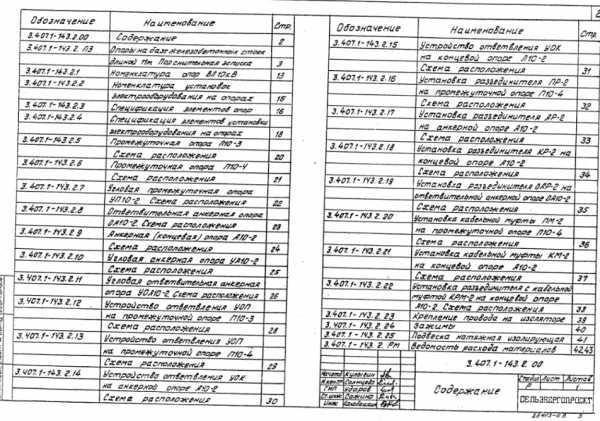 Обозначение Наименование Стр.
3.407.1-143.2.00 Содержание 2
3.407.1-143.2.ПЗ Опоры на базе железобетонных стоек
длиной 11м. Пояснительная записка 3
3.407.1-143.2.1 Номенклатура опор ВЛ 10кВ 13
3.407.1-143.2.2 Номенклатура установок
электрооборудования на опорах 15
3.407.1-143.2.3 Спецификация элементов опор 16
3.407.1-143.2.4 Спецификация элементов установки
электрооборудования на опорах 18
3.407.1-143.2.5 Промежуточная опора П10-3
Схема расположения 20
3.407.1-143.2.6 Промежуточная опора П10-4
Схема расположения 21
3.407.1-143.2.7 Угловая промежуточная опора
УП10-2. Схема расположения 22
3.407.1-143.2.8 Ответвительная анкерная опора
ОА10-2. Схема расположения 23
3.407.1-143.2.9 Анкерная (концевая) опора А10-2
Схема расположения 24
3.407.1-143.2.10 Угловая анкерная опора УА10-2
Схема расположения 25
3.407.1-143.2.11 Угловая ответвительная анкерная
опора УОА10-2. Схема расположения 26
3.407.1-143.2.12 Устройство ответвления УОП
на промежуточной опоре П10-3
Схема расположения 28
3.407.1-143.2.13 Устройство ответвления УОП
на промежуточной опоре П10-4
Схема расположения 29
3.407.1-143.2.14 Устройство ответвления УОК
на анкерной опоре А10-2
Схема расположения 30
Обозначение Наименование Стр.
3.407.1-143.2.15 Устройство ответвления УОК
на концевой опоре А10-2
Схема расположения 31
3.407.1-143.2.16 Установка разъединителя ПР-2
на промежуточной опоре П10-4
Схема расположения 32
3.407.1-143.2.17 Установка разъединителя АР-2
на анкерной опоре А10-2
Схема расположения 33
3.407.1-143.2.18 Установка разъединителя КР-2 на
концевой опоре А10-2
Схема расположения 34
3.407.1-143.2.19 Установка разъединителя ОАР-2 на
ответвительной анкерной опоре ОА10-2
Схема расположения 35
3.407.1-143.2.20 Установка кабельной муфты ПМ-2
на промежуточной опоре П10-4
Схема расположения 36
3.407.1-143.2.21 Установка кабельной муфты КМ-2
на концевой опоре А10-2
Схема расположения 37
3.407.1-143.2.22 Установка разъединителя с кабельной
муфтой КРМ-2 на концевой опоре
А10-2. Схема расположения 38
3.407.1-143.2.23 Крепление провода на изоляторе 39
3.407.1-143.2.24 Зажимы 40
3.407.1-143.2.25 Подвеска натяжная изолирующая 41
3.407.1-143.2.РМ Ведомость расхода материалов 42,43
3.407.1-143.2.00
Содержание
Стадия Лист Листов
Р 1
СЕЛЬЭНЕРГОПРОЕКТ